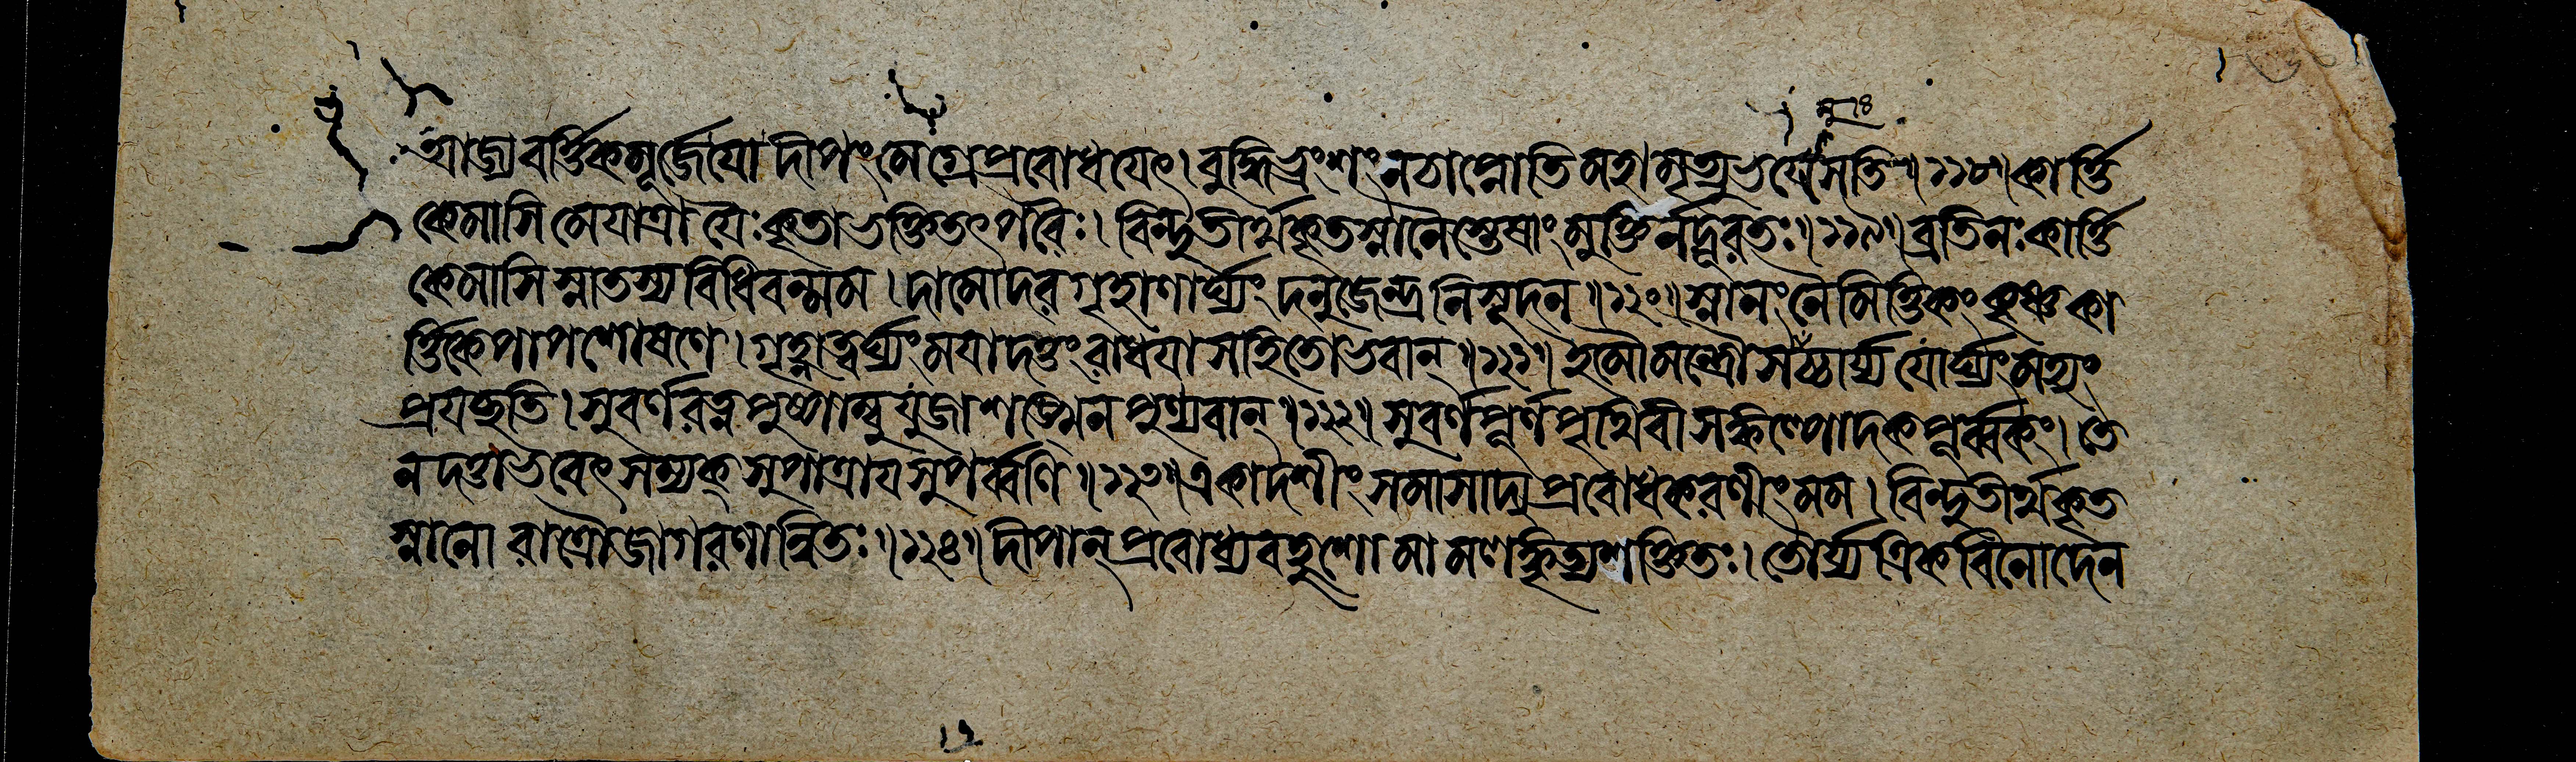 আজ্যবর্ত্তিকমূর্জেযো দীপং মেগ্রেপ্রবোধযেৎ। বুদ্ধিভ্রংশং নচাপ্নোতি মহামৃত্যুভযেসতি॥১১৮॥কার্ত্তি
কেমাসি মেযাত্রা যৈঃ কৃতাভক্তিতৎপরৈঃ। বিন্দুতীর্থকৃতস্নানৈস্তেষাং মুক্তির্নদূরতঃ॥১১৯॥ব্রতিনঃ কার্ত্তি
কেমাসি স্নাতস্য বিধিবন্মম। দামোদর গৃহাণার্ঘ্যং দনুজেন্দ্রনিসূদন॥১২০॥স্নানং নৈমিত্তিকং কৃষ্ণ কা
র্ত্তিকে পাপশোষণে। গৃহ্ণাত্বর্ঘ্যং মযাদত্তং রাধযা সহিতোভবান্॥১২১॥ইমৌমন্ত্রৌসমুচ্চার্য্য যোর্ঘ্যং মহ্যং
প্রযচ্ছতি। সুবর্ণরত্নপুষ্পাম্বুযুজা শঙ্খেন পুণ্যবান্॥১২২॥সুবর্ণপূর্ণপৃথিবী সঙ্কল্পোদকপূর্ব্বকং। তে
ন দত্তাভবেৎ সম্যক্ সুপাত্রায সুপর্ব্বণি॥১২৩॥একাদশীং সমাসাদ্য প্রবোধকরণীং মম। বিন্দুতীর্থকৃত
স্নানো রাত্রৌজাগরণান্বিতঃ॥১২৪॥দীপান্ প্রবোধ্য বহুশো মামলঙ্কৃত্য শক্তিতঃ। তৌর্য্যত্রিক বিনোদেন